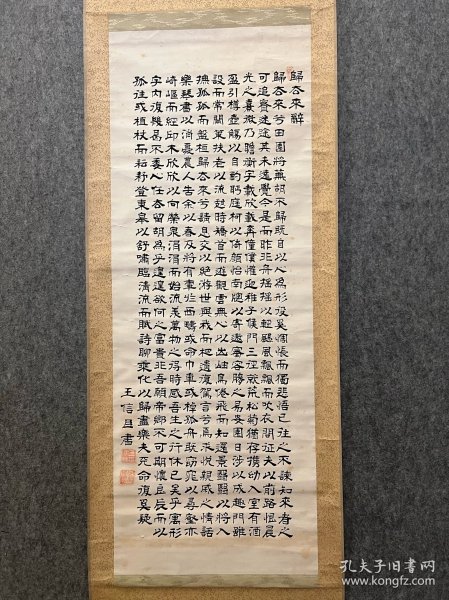 歸去來辭
歸去來兮田園將蕪胡不歸既自以心為形役奚惆悵而獨悲悟已往之不諫知來者之
可追實迷途其未遠覺今是而昨非舟搖搖以輕颺風飄飄而吹衣問征夫以前路恨晨
光之熹微乃瞻衡宇載欣載奔僮僕歡迎稚子候門三徑就荒松菊猶存攜幼入室有酒
盈引樽壺觴以自酌眄庭柯以倚顏怡南牕以寄遨審容膝之易安園日涉以成趣門雖
設而常關策扶老以流憩時矯首而遊觀雲無心以出岫鳥倦飛而知還景翳翳以將入
撫孤松而盤桓歸去來兮請息交以絕游世與我而相遺復駕言兮焉求悅親戚之情話
樂琴書以消憂農人告余以春及將有事於西疇或命巾車或棹孤舟既窈窕以尋壑亦
崎嶇而經邱木欣欣以向榮泉涓涓而始流羨萬物之得時感吾生之行休已矣乎寓形
宇內復幾時曷不委心任去留胡為乎遑遑欲何之富貴非吾願帝鄉不可期懷良辰而以
孤往或植杖而耘耔登東皋以舒嘯臨清流而賦詩聊乘化以歸盡樂夫天命復奚疑
王信日書
孔夫子旧书网
www.kongfz.com